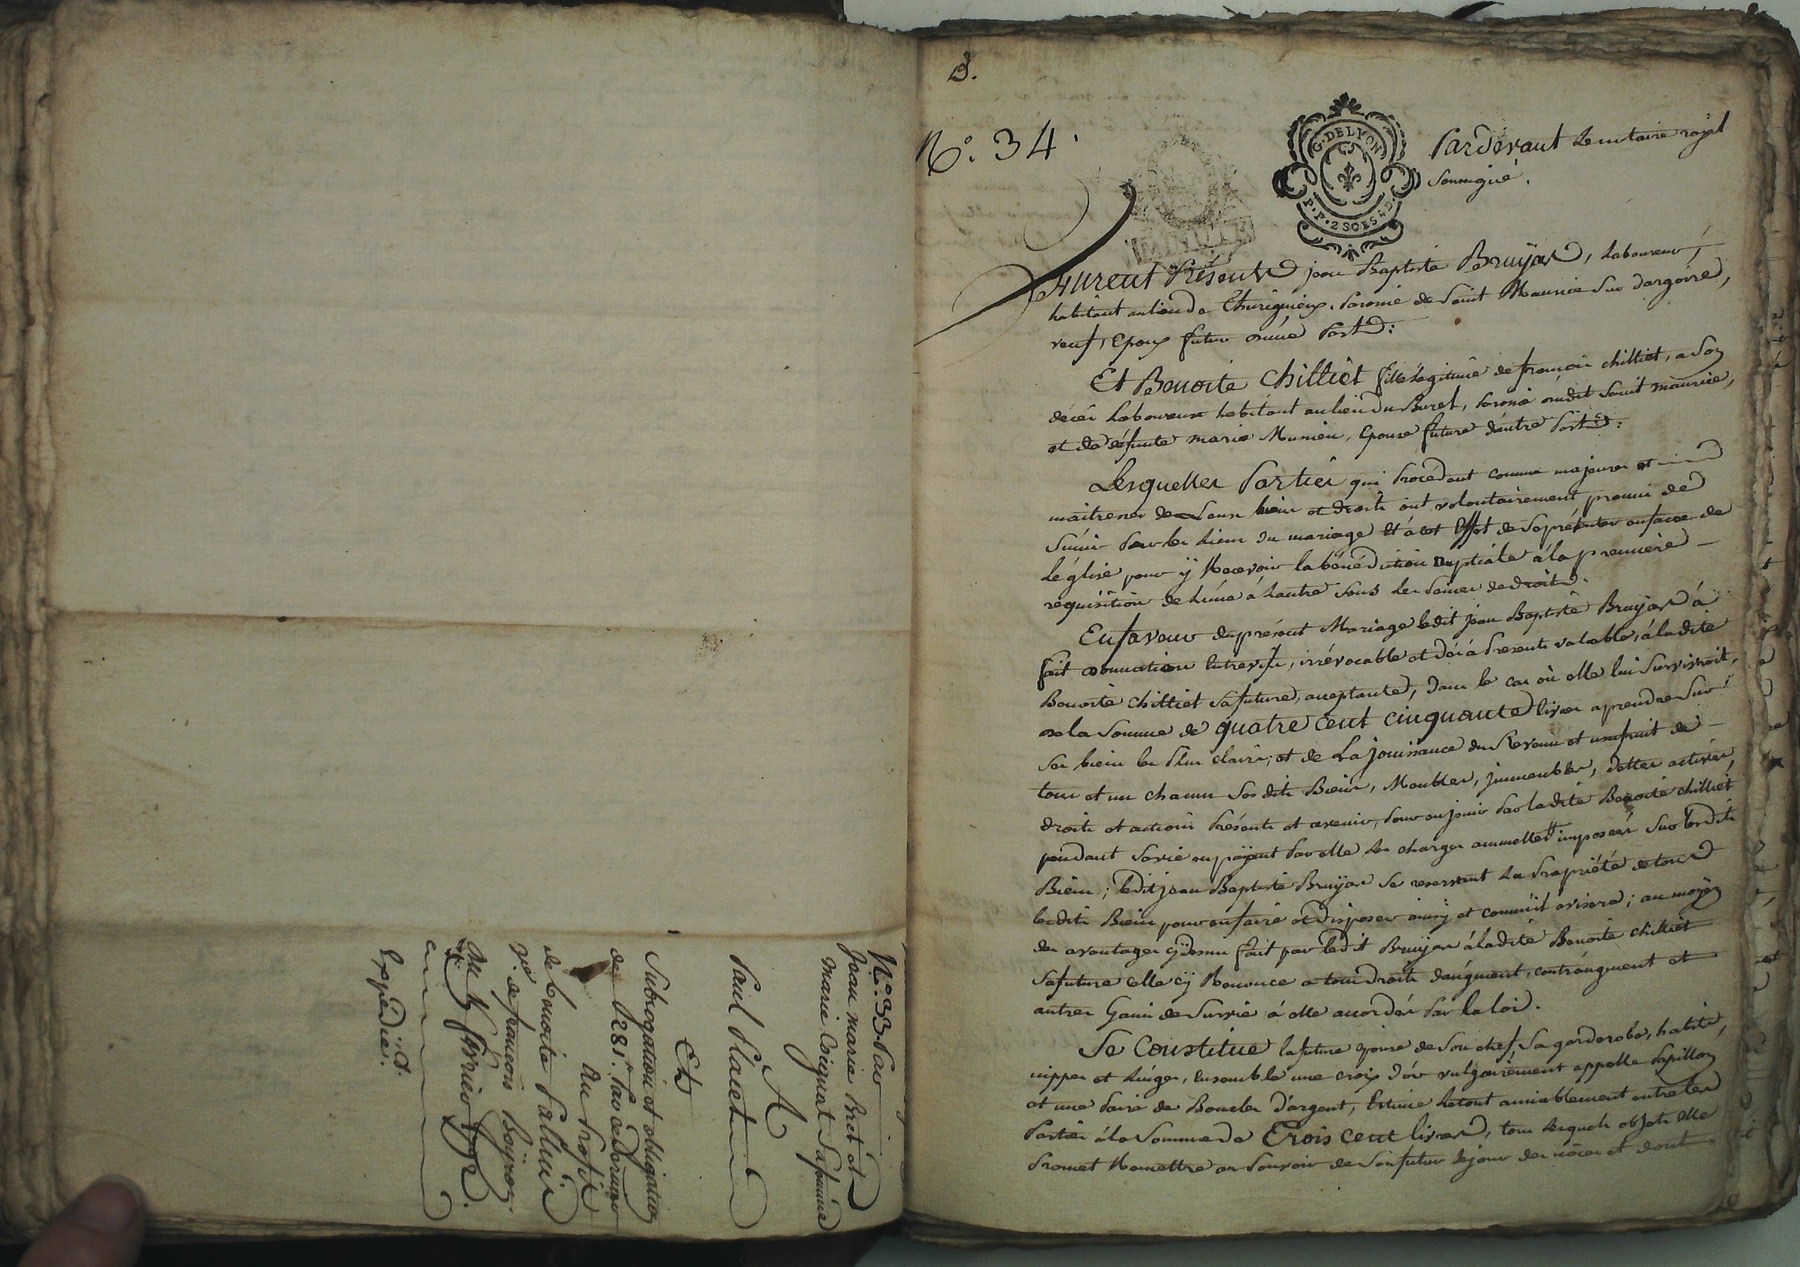 N.° 33. Par
Jean marie Bret et
marie Coignat Sa femme
A
Paul Placet
Et
Subrogation et obligation
de 1281.# par ce dernier
Au Profit
de benoite Palluis
v.e de francois Boiron
du
Expédié.
N.° 34.
G. DE LYON
P.P. 2 SOLS 4 D.
MINUTE
Pardevant Le notaire royal
Soussigné.
furent Présents jean Baptiste Bruÿas, Laboureur,
habitant au lieu de Thurigneux, Paroisse de Saint Maurice Sur dargoire,
veuf, Epoux futur d'une Part:
Et Benoite Chilliet fille légitime de francois chilliet, a Son
décès Laboureur habitant au lieu du Buret, Paroisse dudit Saint maurice,
et de défunte marie Munier, Epouse future d'autre Part:
Lesquelles Parties qui Procédant comme majeures et
maitresses de Leurs biens et droits ont volontairement promis de
S'unir Par les Liens du mariage Et à cet Effet de Se présenter en face de
Léglise pour ÿ Recevoir la bénédiction nuptiale à la premiere
requisition de L'une à L'autre Sous les Peines de droit.
En faveur du présent Mariage ledit jean Baptiste Bruÿas à
fait donnation Entrevifs, irrévocable et dès à Présent valable, à ladite
Benoite chilliet Sa future, acceptante, dans le cas où elle lui Survivroit,
de la Somme de quatre Cent cinquante livres a prendre Sur
Ses biens les Plus clairs; et de La jouissance du Revenu et usufruit de
tous et un chacun Ses dits Biens, Meubles, immeubles, dettes actives,
droits et actions Présents et avenir, Pour en jouir Par ladite Benoite chilliet
pendant Sa vie en païant Par elle les charges annuelles imposées Sur Lesdits
Biens; ledit jean Baptiste Bruÿas Se reservant La Propriété de tous
lesdits Biens pour en faire et disposer ainsÿ et comm'il avisera; au moÿen
des avantages cÿdessus fait par ledit Bruÿas à ladite Benoite chilliet
Sa future celle cÿ Renonce a tous droits daugment, contraugment et
autres Gains de Survie à elle accordés Par la loi.
Se Constitue la future épouse de Son chef, Sa garderobe, habits,
nippes et Linges, Ensemble une croix d'or vulgairement appellé Papillon
et une Paire de Boucles d'argent, Estimé Letout amiablement entre les
Parties à la Somme de Trois cent livres, tous lesquels objets elle
Promet Remettre au Pouvoir de Son futur le jour des nôces et dont